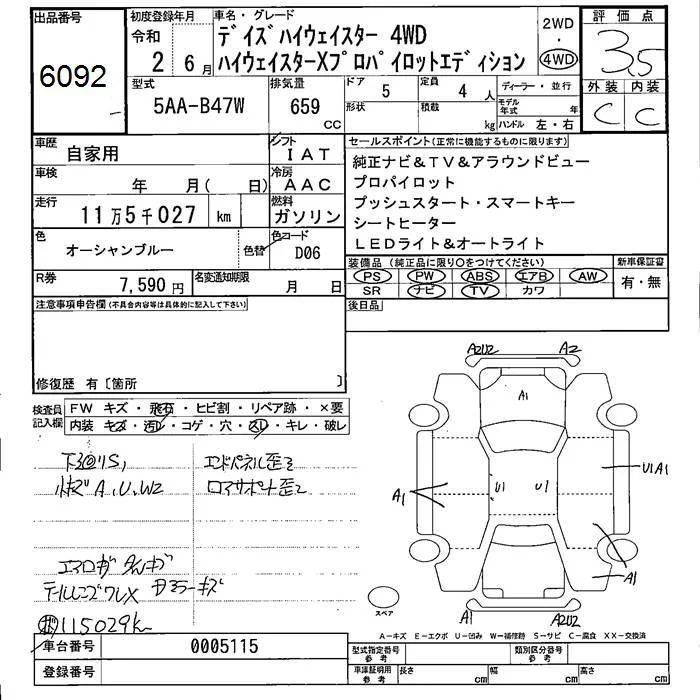 出品番号
6092
初度登録年月
令和
2 6月
車名・グレード
デイズハイウェイスター 4WD
ハイウェイスターXプロパイロットエディション
2WD
・
4WD
評価点
3.5
外装 内装
C C
型式
5AA-B47W
排気量
659
cc
ドア
5
定員
4 人
形状
積載
kg
ディーラー・並行
モデル年式 年
ハンドル 左・右
車歴
自家用
シフト
IAT
車検
年 月( 日)
冷房
AAC
走行
11万5千027 km
燃料
ガソリン
色
オーシャンブルー
色替
色コード
D06
R券
7,590円
名変通知期限
月 日
セールスポイント(正常に機能するものに限ります)
純正ナビ&TV&アラウンドビュー
プロパイロット
プッシュスタート・スマートキー
シートヒーター
LEDライト&オートライト
装備品 (純正品に限り○をつけてください)
PS PW ABS エアB AW
SR ナビ TV カワ
新車保証書
有・無
後日品
注意事項申告欄(不具合内容等は具体的に記入して下さい)
修復歴 有〔箇所 〕
検査員記入欄
FW キズ・飛石・ヒビ割・リペア跡・×要
内装 キズ・汚レ・コゲ・穴・スレ・キレ・破レ
エンドパネル歪ミ
小キズA,U,W2
ロアサポート歪ミ
テールレンズワレX
115029k
A2U2 A2
A1
U1 U1
U1A1
A1
A1
A1 A2U2
スペア
A-キズ E-エクボ U-凹み W-補修跡 S-サビ C-腐食 XX-交換済
車台番号
0005115
登録番号
型式指定番号
参考
類別区分番号
参考
車庫証明用
参考
長さ cm
幅 cm
高さ cm